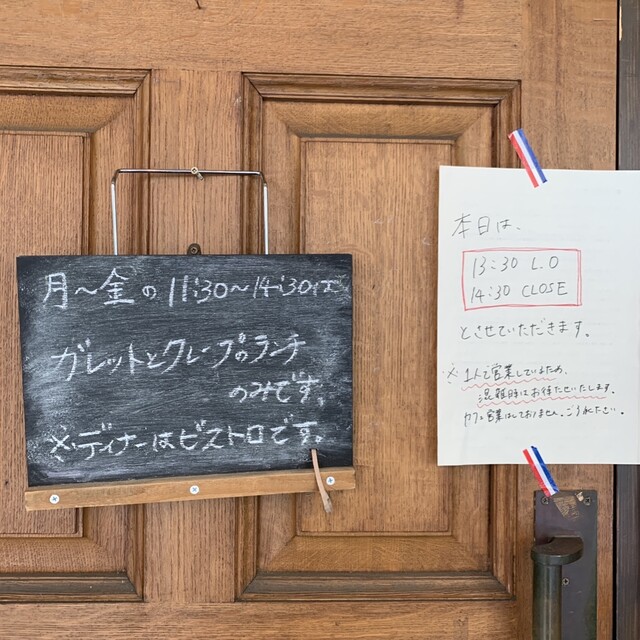 月〜金の11:30〜14:30は
ガレットとクレープのランチ
のみです。
※ディナーはビストロです。
本日は、
13:30 L.O
14:30 CLOSE
とさせていただきます。
※1人で営業しているため、
混雑時はお待たせいたします。
カフェ営業はしておりません。ご了承ください。